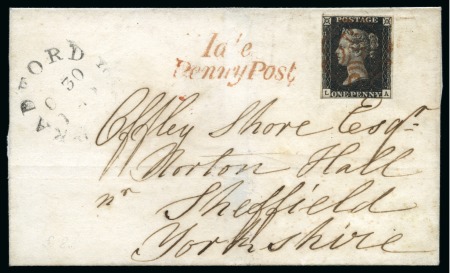 POSTAGE
ONE PENNY
L A
Penny Post
Offley Shore Esqr
Norton Hall
nr Sheffield
Yorkshire